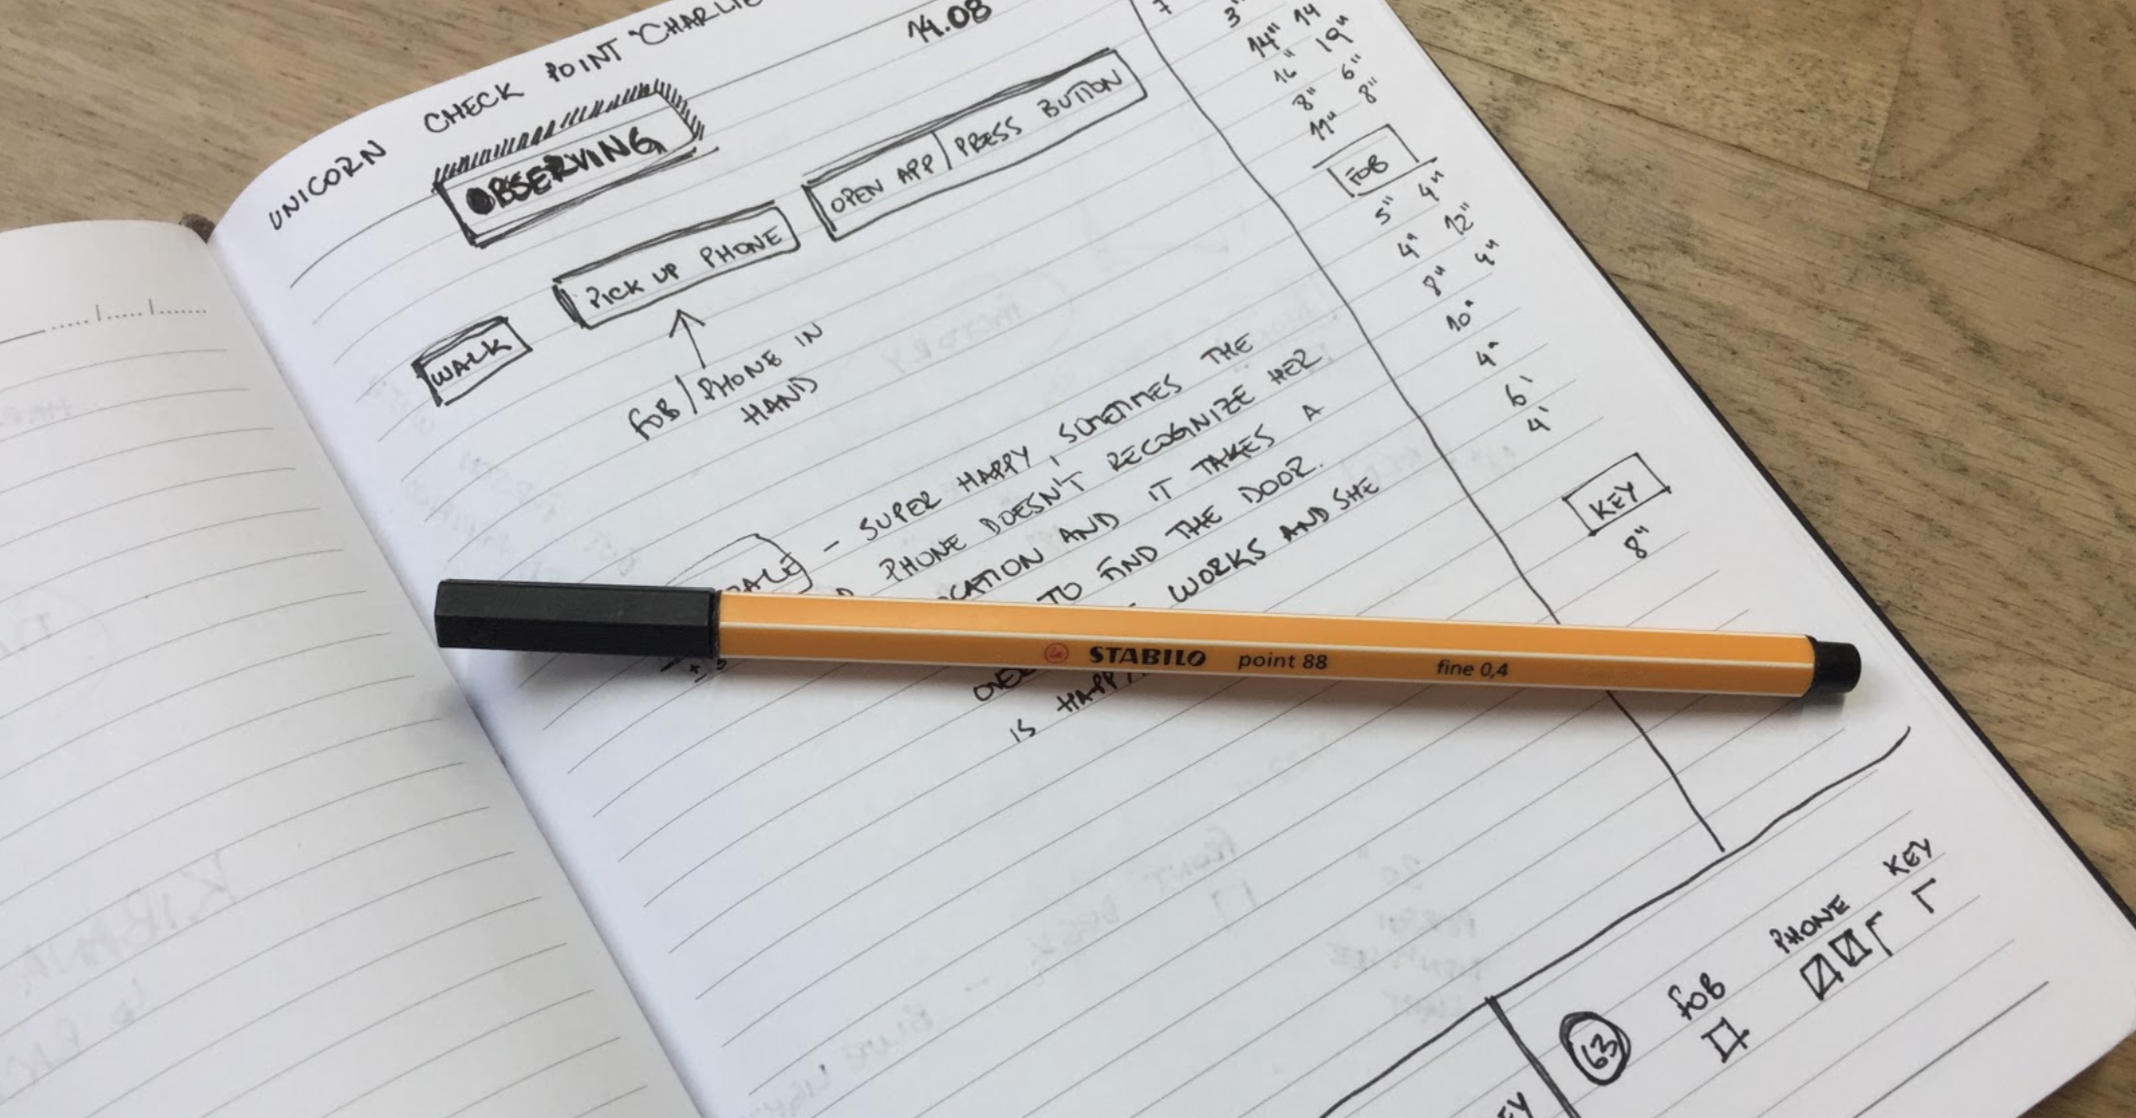 UNICORN CHECK POINT "CHARLIE
14.08
OBSERVING
WALK
PICK UP PHONE
OPEN APP | PRESS BUTTON
FOB / PHONE IN
HAND
- SUPER HAPPY, SOMETIMES THE
PHONE DOESN'T RECOGNIZE HER
AND IT TAKES A
TO FIND THE DOOR.
WORKS AND SHE
IS HAPPY
7 3"
14" 14
16" 19"
8" 6"
11" 8"
FOB
5" 4"
4" 12"
8" 4"
10"
4"
6'
4'
KEY
8"
STABILO point 88 fine 0,4
63 FOB PHONE KEY